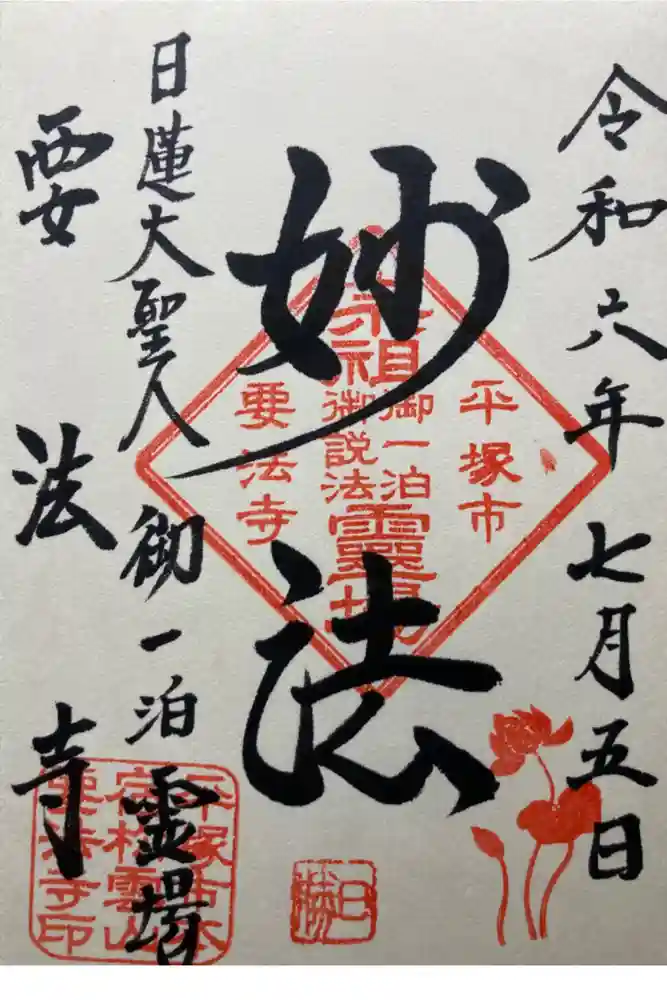 令和六年七月五日
妙法
日蓮大聖人御一泊霊場
要法寺
平塚市
宗祖御一泊御説法靈場
要法寺
平塚市本
宿松雲山
要法寺印